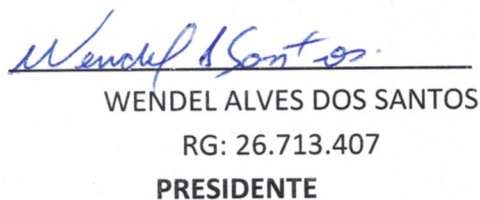 Wendel A Santos.
WENDEL ALVES DOS SANTOS
RG: 26.713.407
PRESIDENTE